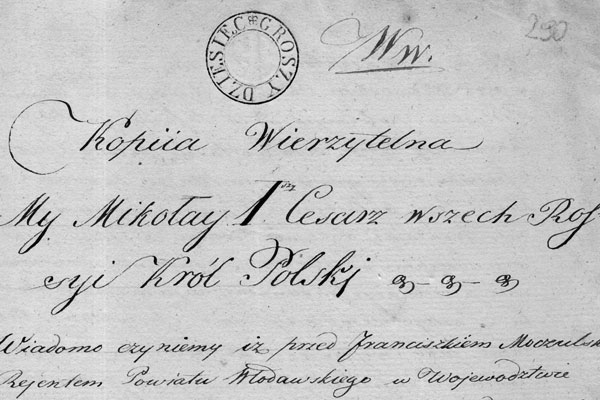 DZIESIEC GROSZY
Ww.
290
Kopiia Wierzytelna
My Mikołay Iszy Cesarz wszech Ros-
syi Król Polski
Wiadomo czyniemy iż przed Franciszkiem Moczulsk
Rejentem Powiatu Włodawskiego w Wojewodztwie